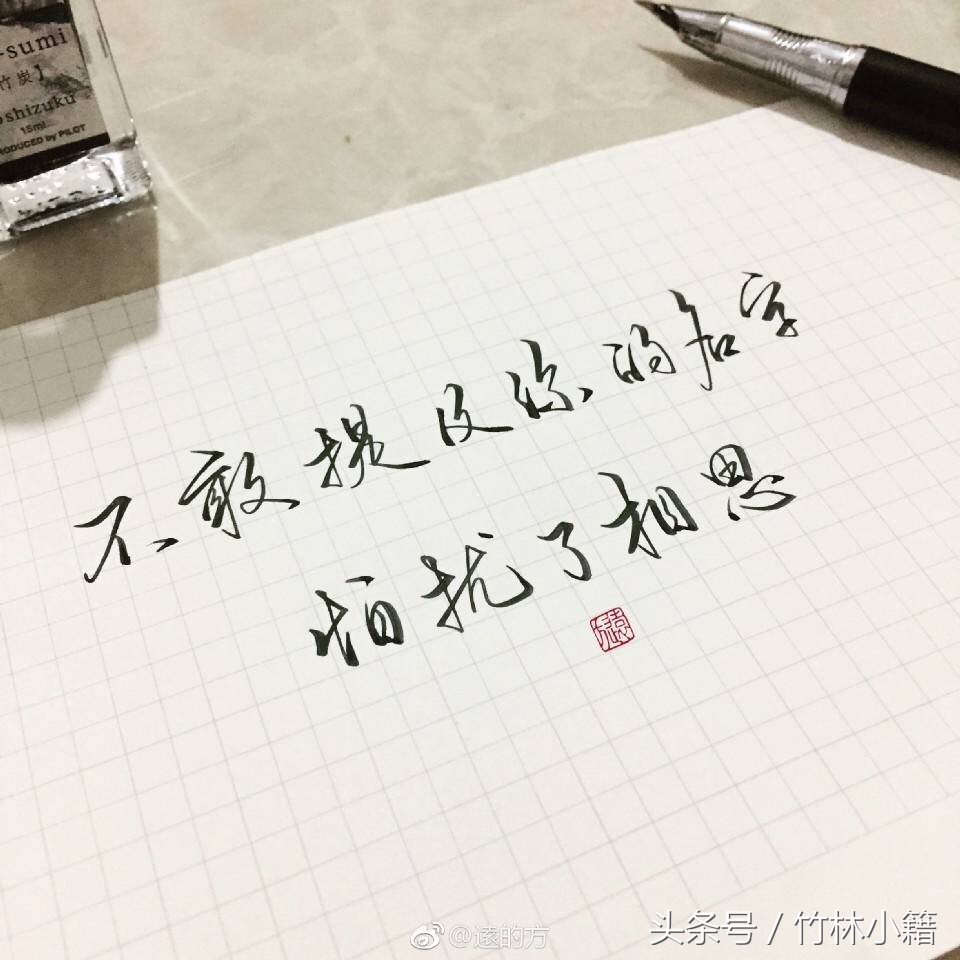 -sumi
竹炭】
oshizuku
15ml
RODUCED by PILOT
不敢提及你的名字
怕扰了相思
@逺的方
头条号 / 竹林小籍